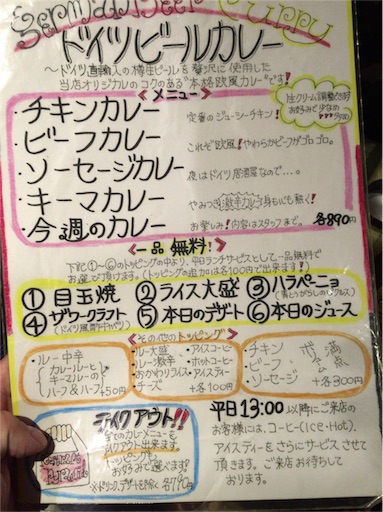 German Beer Curry
ドイツビールカレー
〜ドイツ直輸入の樽生ビールを贅沢に使用した
当店オリジナルのコクのある"本格欧風カレー"です!
《メニュー》
・チキンカレー 定番のジューシーチキン!
・ビーフカレー これぞ欧風!やわらかビーフがゴロゴロ。
・ソーセージカレー 夜はドイツ居酒屋なので…。
・キーマカレー
・今週のカレー お楽しみ!内容はスタッフまで。 各890円
《一品 無料!》
下記①〜⑥のトッピングの中より、平日ランチサービスとして一品無料で
お選び頂けます。(トッピングの追加は各100円で出来ます!)
①目玉焼 ②ライス大盛 ③ハラペーニョ
(青とうがらしのピクルス)
④ザワークラフト ⑤本日のデザート ⑥本日のジュース
(ドイツ風酢キャベツ)
《その他のトッピング》
・ルー中辛
カレールーと
キーマルーの
ハーフ&ハーフ +50円
・ルー大盛 ・アイスコーヒー
・ルー激辛 ・ホットコーヒー
・おかわりライス ・アイスティー
・チーズ +各100円
・チキン
・ビーフ
・ソーセージ +各300円
テイクアウト!!
全てのカレーメニューを
テイクアウト出来ます。
トッピングも
お好みで選べます!
各770円
平日13:00以降にご来店の
お客様には、コーヒー(Ice・Hot)、
アイスティーをさらにサービスさせて
頂きます。ご来店お待ちして
おります。